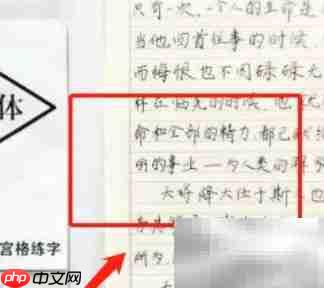 体
宫格练字
只有一次,一个人的生命是
当他回首往事的时候
而悔恨也不因碌碌无
样在临死的时候,他
命和全部的精力,都已
明的事业——为人类的
天将降大任于斯人也
所为
php中文网